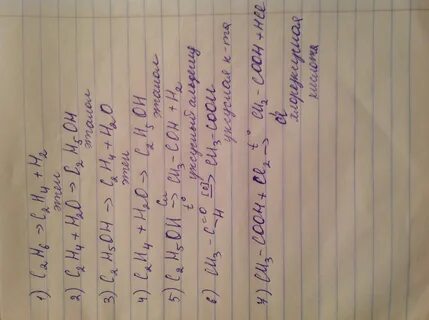 1) C2H6 → C2H4 + H2
этен
2) C2H4 + H2O → C2H5OH
этанол
3) C2H5OH → C2H4 + H2O
этен
4) C2H4 + H2O → C2H5OH
этанол
5) C2H5OH →Cu t° CH3-COH + H2
уксусный альдегид
6) CH3-C=O-H [O]→ CH3-COOH
уксусная к-та
7) CH3-COOH + Cl2 →t° CH2-COOH + HCl
Cl
хлоруксусная
кислота